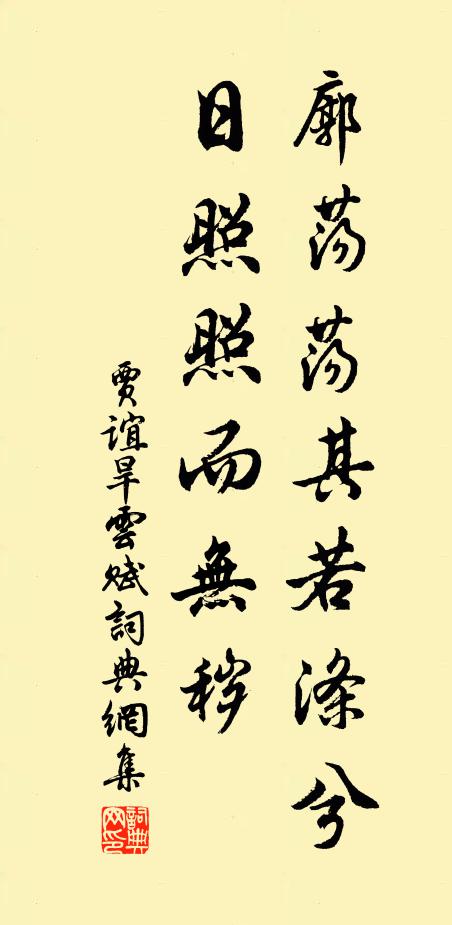 廓蕩蕩其若滌兮
日照照而無穢
賈誼旱雲賦詞典網集
詞典網印